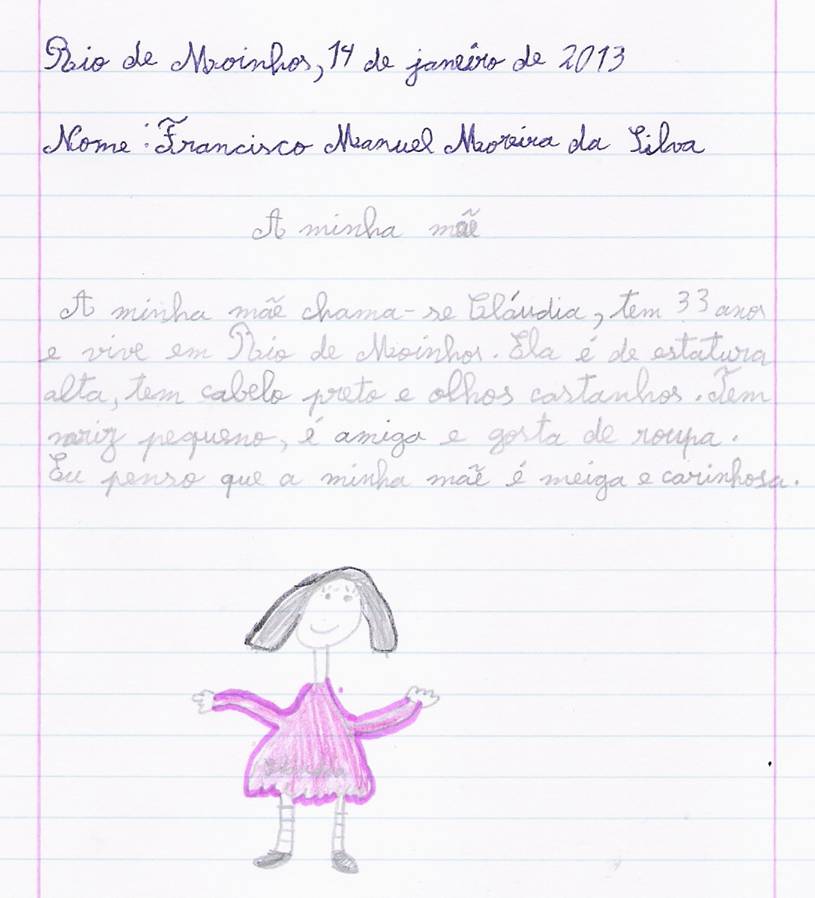 Rio de Moinhos, 14 de janeiro de 2013
Nome: Francisco Manuel Moreira da Silva
A minha mãe
A minha mãe chama-se Cláudia, tem 33 anos
e vive em Rio de Moinhos. Ela é de estatura
alta, tem cabelo preto e olhos castanhos. Tem
nariz pequeno, é amiga e gosta de roupa.
Eu penso que a minha mãe é meiga e carinhosa.